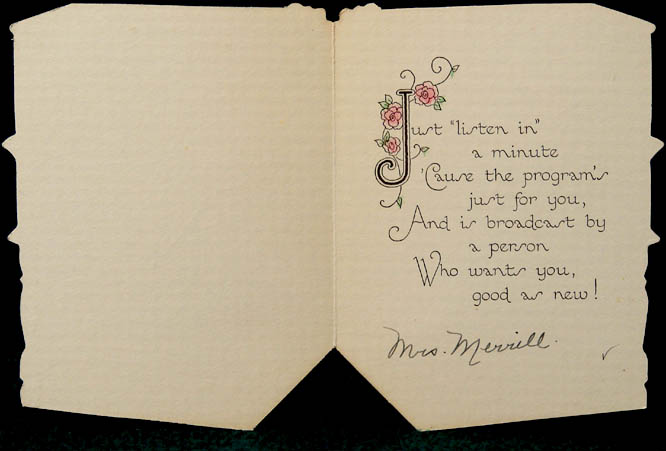 Just "listen in"
a minute
'Cause the program's
just for you,
And is broadcast by
a person
Who wants you,
good as new!
Mrs. Merrill.